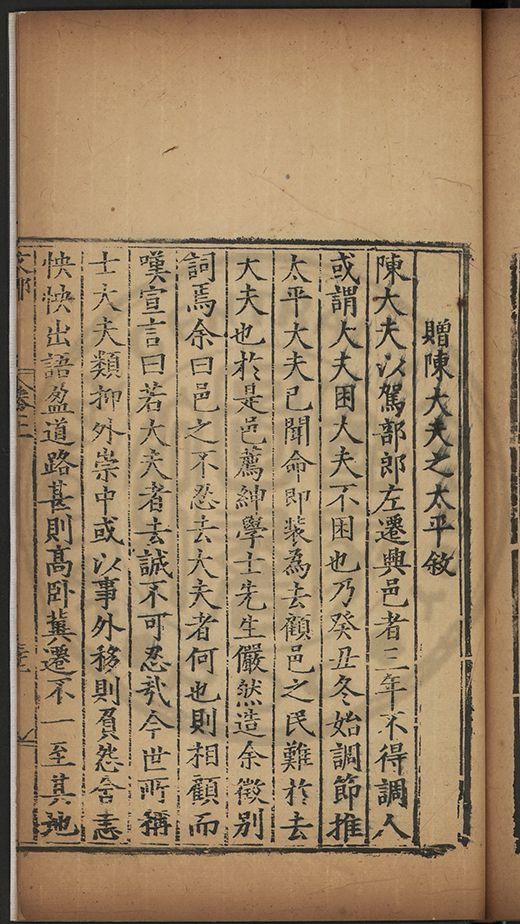 贈陳大夫之太平敘
陳大夫以駕部郎左遷興邑者三年不得調人
或謂大夫困大夫不困也乃癸丑冬始調節推
太平大夫已聞命即裝為去顧邑之民難於去
大夫也於是邑薦紳學士先生儼然造余徵別
詞焉余曰邑之不忍去大夫者何也則相顧而
嘆宣言曰若大夫者去誠不可忍哉今世所稱
士大夫類抑外崇中或以事外移則負怨舍恚
怏怏出語盈道路甚則高臥冀遷不一至其地